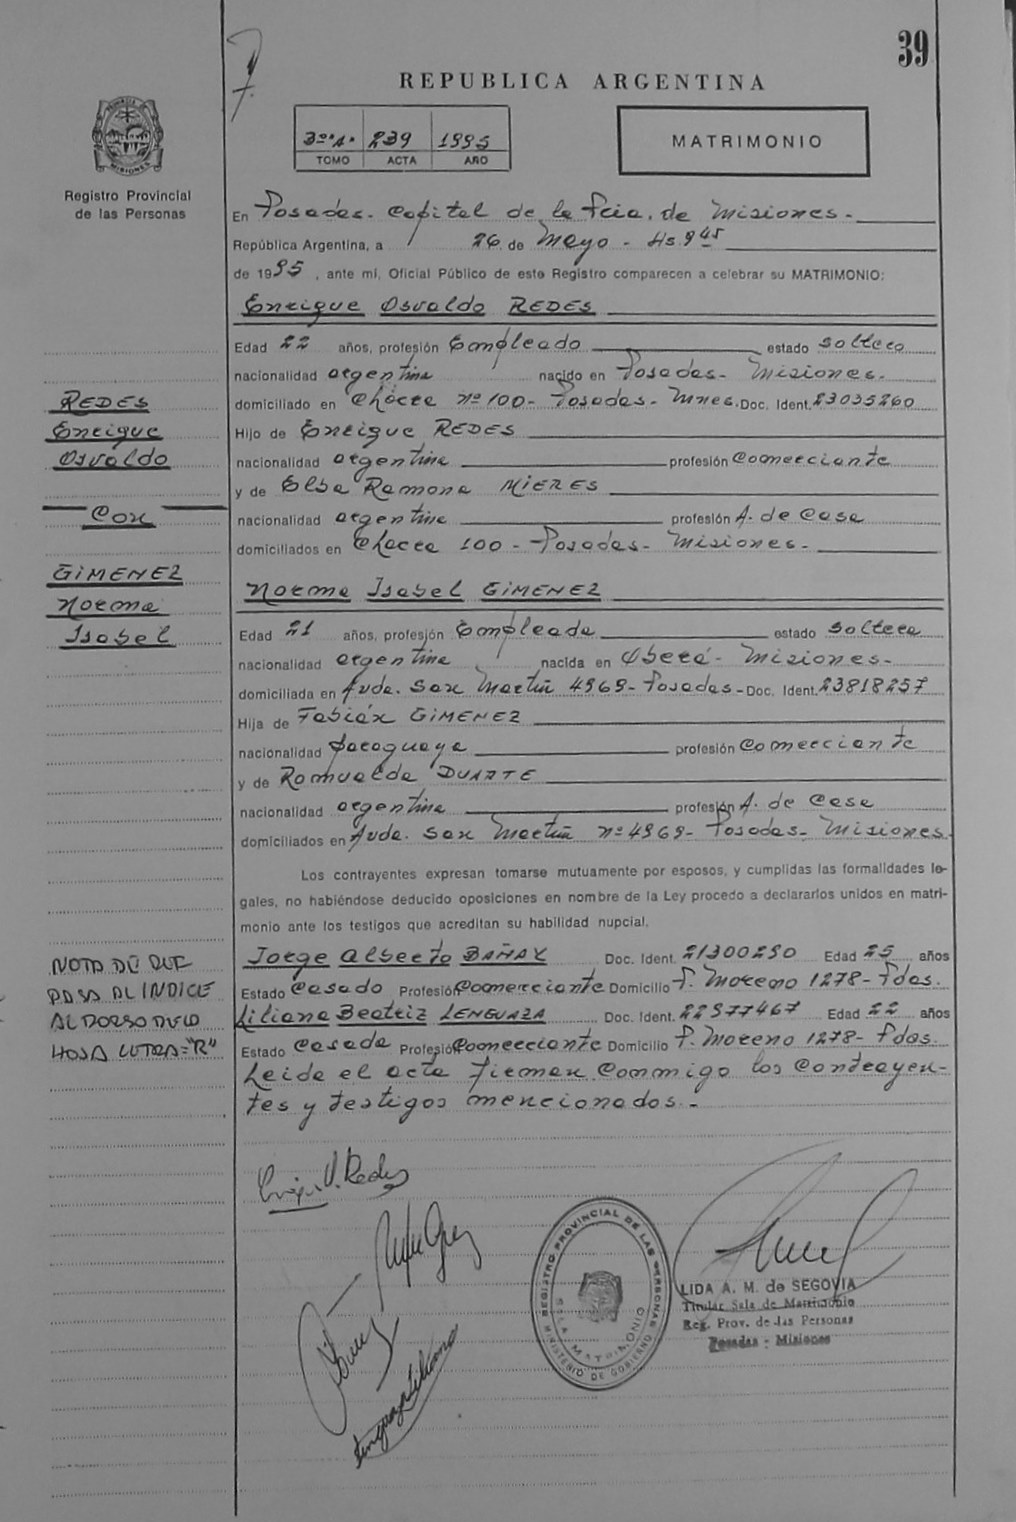 39
REPUBLICA ARGENTINA
3º "A" 239 1995
TOMO ACTA AÑO
MATRIMONIO
Registro Provincial
de las Personas
En Posadas - Capital de la Pcia. de Misiones -
República Argentina, a 26 de Mayo - Hs 9 45
de 1995, ante mí, Oficial Público de este Registro comparecen a celebrar su MATRIMONIO:
Enrique Osvaldo REDES
Edad 22 años, profesión Empleado estado soltero
nacionalidad argentina nacido en Posadas - Misiones -
domiciliado en Chacra nº 100 - Posadas - Mnes. Doc. Ident. 23035260
Hijo de Enrique REDES
nacionalidad argentina profesión Comerciante
y de Elsa Ramona MIERES
nacionalidad argentina profesión A. de Casa
domiciliados en Chacra 100 - Posadas - Misiones -
Norma Isabel GIMENEZ
Edad 21 años, profesión Empleada estado soltera
nacionalidad argentina nacida en Oberá - Misiones -
domiciliada en Avda. San Martín 4969 - Posadas - Doc. Ident. 23818257
Hija de Fabián GIMENEZ
nacionalidad paraguaya profesión Comerciante
y de Romualda DUARTE
nacionalidad argentina profesión A. de Casa
domiciliados en Avda. San Martín nº 4969 - Posadas - Misiones.
Los contrayentes expresan tomarse mutuamente por esposos, y cumplidas las formalidades le-
gales, no habiéndose deducido oposiciones en nombre de la Ley procedo a declararlos unidos en matri-
monio ante los testigos que acreditan su habilidad nupcial.
Jorge Alberto Doc. Ident. 21300250 Edad 25 años
Estado Casado Profesión Comerciante Domicilio P. Moreno 1278 - Pdas.
Liliana Beatriz LENGUAZA Doc. Ident. 22377467 Edad 22 años
Estado Casada Profesión Comerciante Domicilio P. Moreno 1278 - Pdas.
Leida el acta firman conmigo los contrayen-
tes y testigos mencionados -
REDES
Enrique
Osvaldo
Con
GIMENEZ
Norma
Isabel
NOTA DE QUE
PASA AL INDICE
AL DORSO DE LA
HOJA LETRA="R"
Redes
Lenguaza Liliana
REGISTRO PROVINCIAL DE LAS PERSONAS
SALA MATRIMONIO
MINISTERIO DE GOBIERNO
LIDA A. M. de SEGOVIA
Titular Sala de Matrimonio
Reg. Prov. de las Personas
Posadas - Misiones